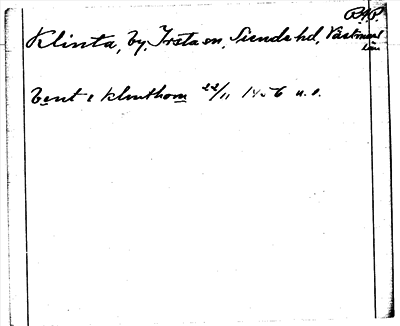 R.A.P.
Klinta, by, Irsta sn, Siende hd, Västmanl
län
Bent i Klinthom 22/11 1456 u. o.